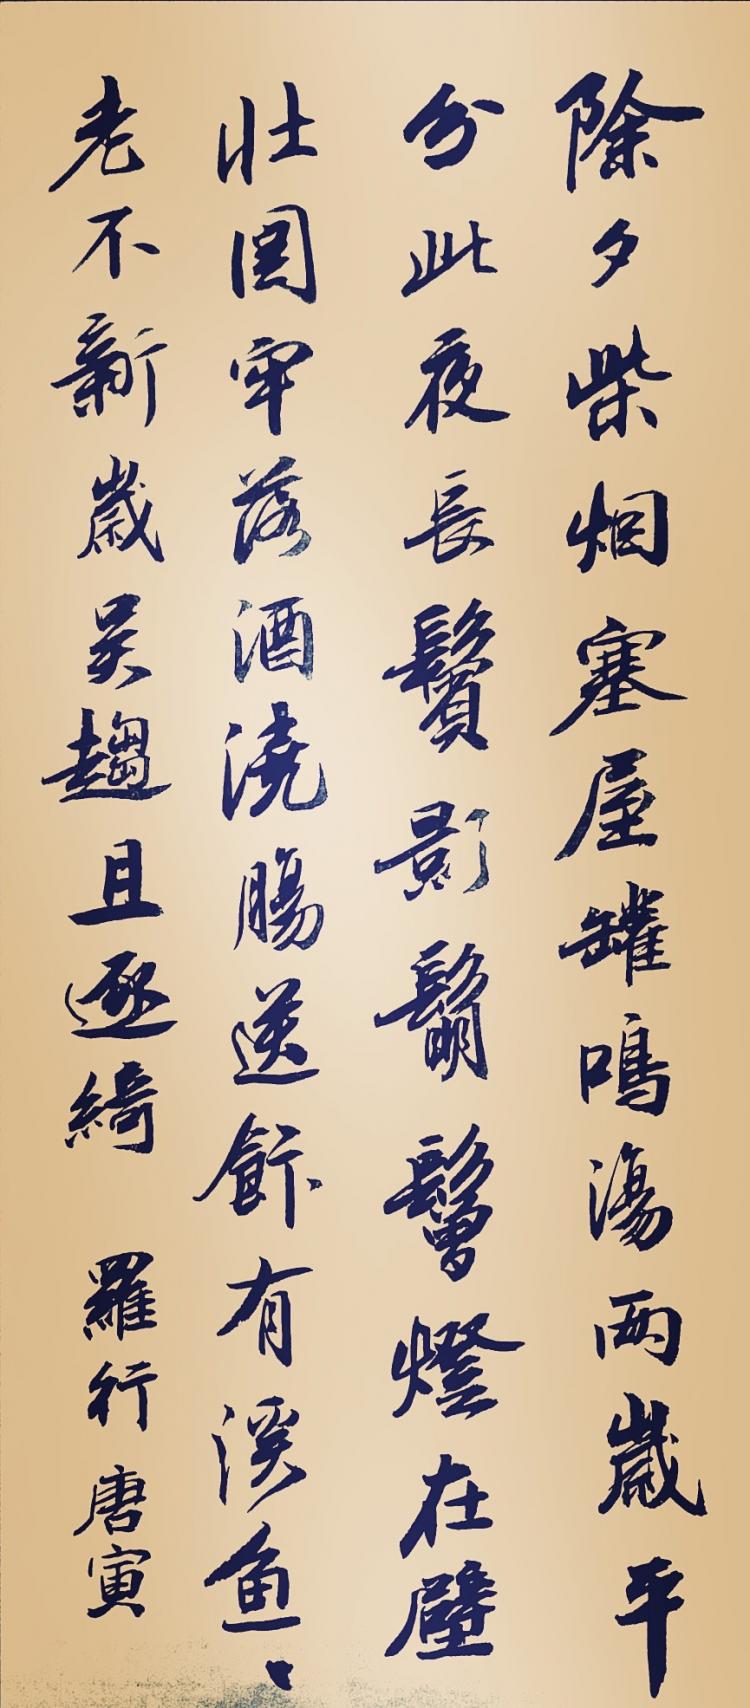 除夕柴烟塞屋罐鳴湯两歲平
分此夜長鬢影鬅鬙燈在壁
壯圖牢落酒澆腸送飰有溪魚
老不新歲吳趨且逐綺羅行唐寅